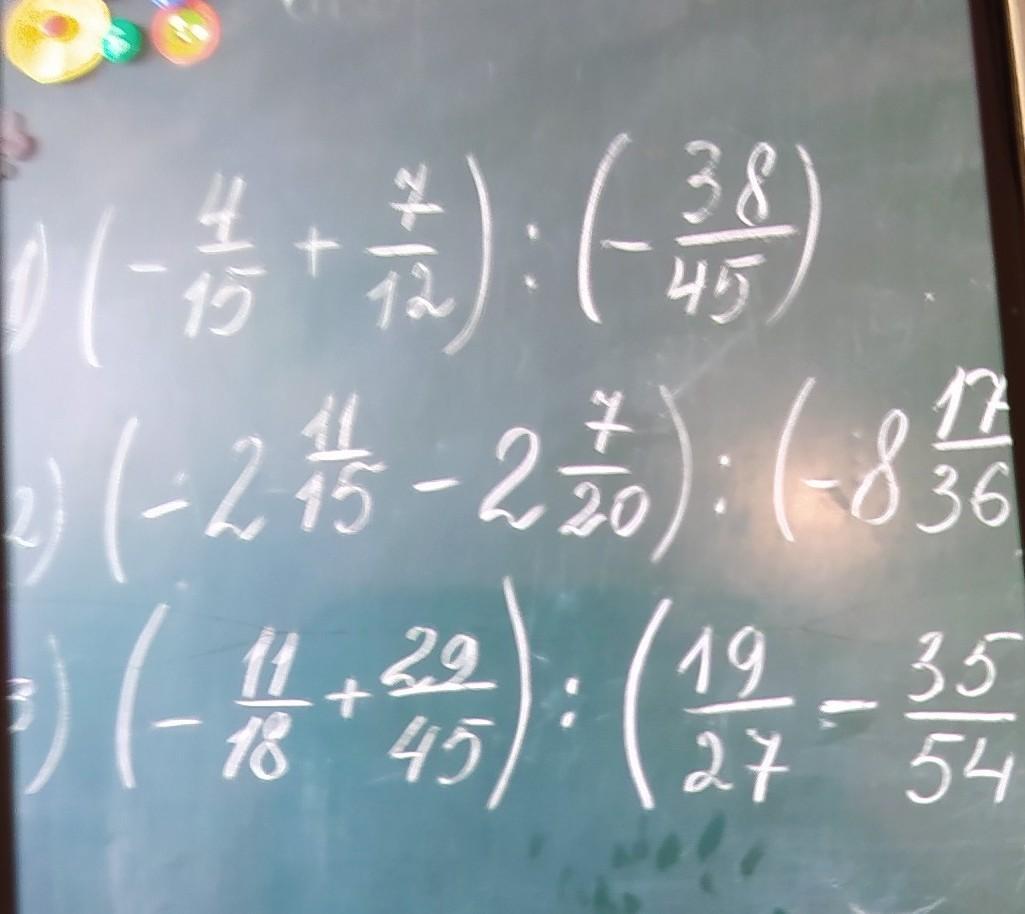 1) (- 4/15 + 7/12) : (- 38/45)
2) (- 2 11/15 - 2 7/20) : (- 8 17/36
3) (- 11/18 + 29/45) : (19/27 - 35/54